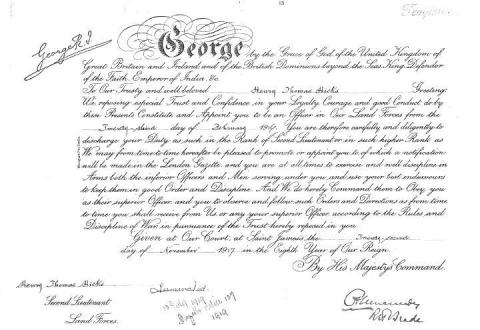 George R.I.
George by the Grace of God, of the United Kingdom of
Great Britain and Ireland, and of the British Dominions beyond the Seas, King, Defender
of the Faith, Emperor of India, &c.
To Our Trusty and well beloved Henry Thomas Hicks Greeting:
We, reposing special Trust and Confidence in your Loyalty, Courage, and good Conduct, do by
these Presents Constitute and Appoint you to be an Officer in Our Land Forces from the
Twenty-third day of February 1917. You are therefore carefully and diligently to
discharge your Duty as such in the Rank of Second Lieutenant or in such higher Rank as
We may from time to time hereafter be pleased to promote or appoint you to, of which a notification
will be made in the London Gazette, and you are at all times to exercise and well discipline in
Arms both the inferior Officers and Men serving under you and use your best endeavours
to keep them in good Order and Discipline. And We do hereby Command them to Obey you
as their superior Officer, and you to observe and follow such Orders and Directions as from time
to time you shall receive from Us, or any your superior Officer, according to the Rules and
Discipline of War, in pursuance of the Trust hereby reposed in you.
Given at Our Court, at Saint James's, the Twenty-second
day of November 1917 in the Eighth Year of Our Reign.
By His Majesty's Command.
Henry Thomas Hicks
Second Lieutenant
Land Forces.
1919
1919